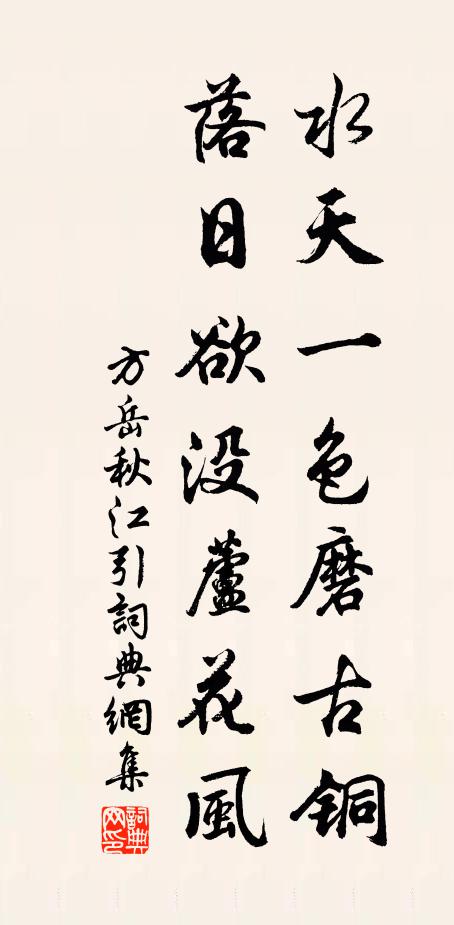 水天一色磨古铜
落日欲没蘆花風
方岳秋江引詞典網集
詞典网印